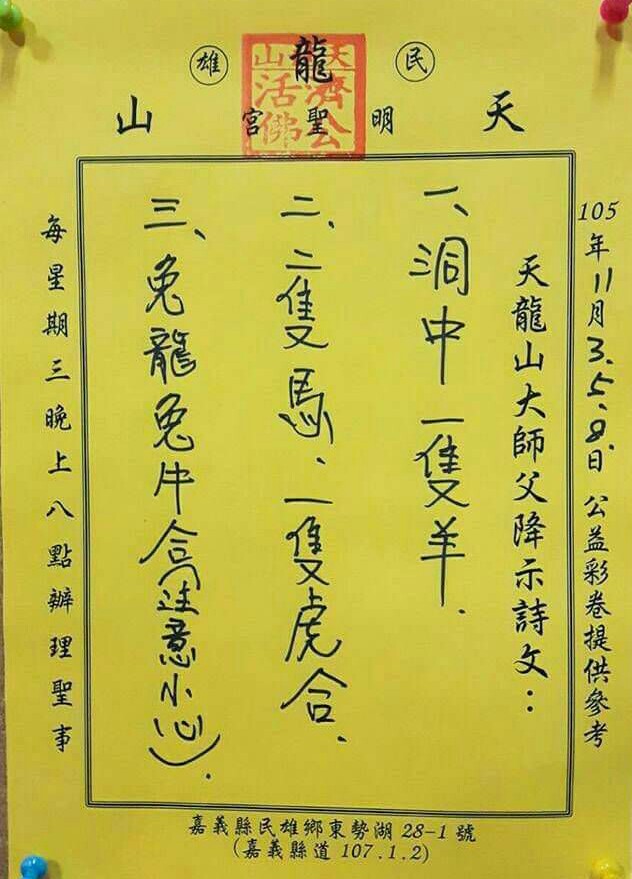 民雄
天龍山
天山濟公活佛
天明聖宮
105年11月3.5.8.日 公益彩卷提供參考
天龍山大師父降示詩文：
一、洞中一隻羊.
二、二隻馬、一隻虎合.
三、兔龍兔牛合(注意小心).
每星期三晚上八點辦理聖事
嘉義縣民雄鄉東勢湖28-1號
(嘉義縣道107.1.2)